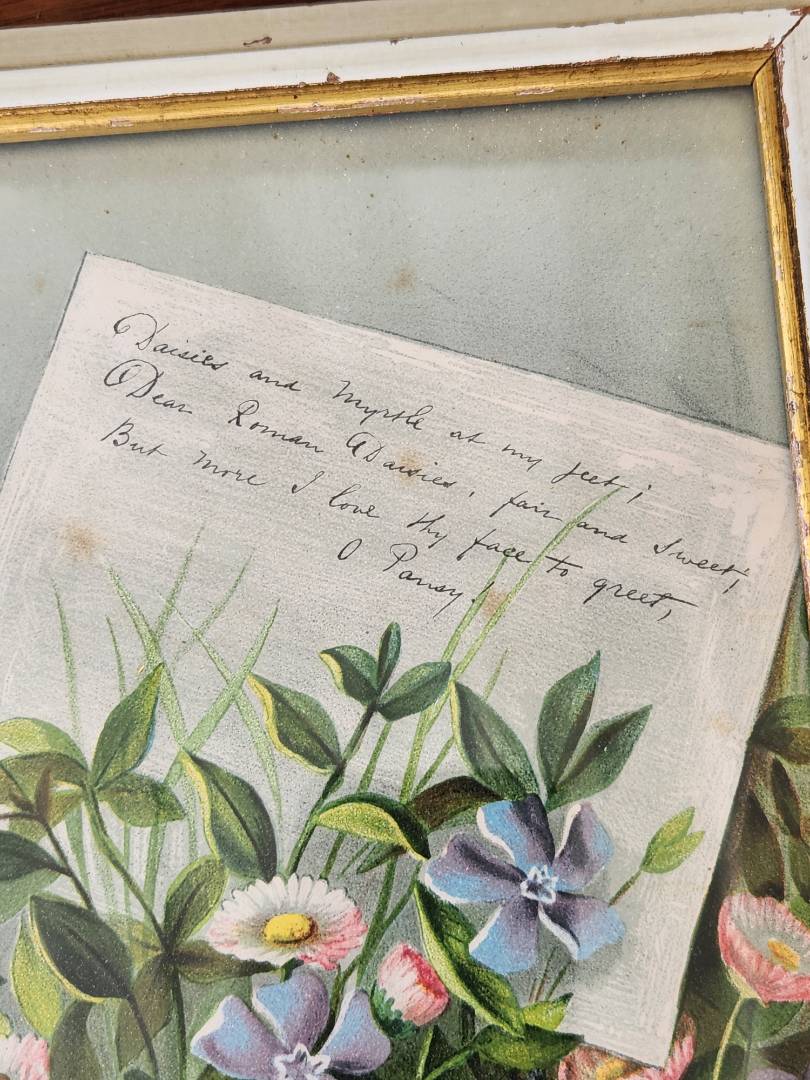 Daisies and Myrtle at my feet;
Dear Roman Daisies, fair and sweet;
But more I love thy face to greet,
O Pansy!